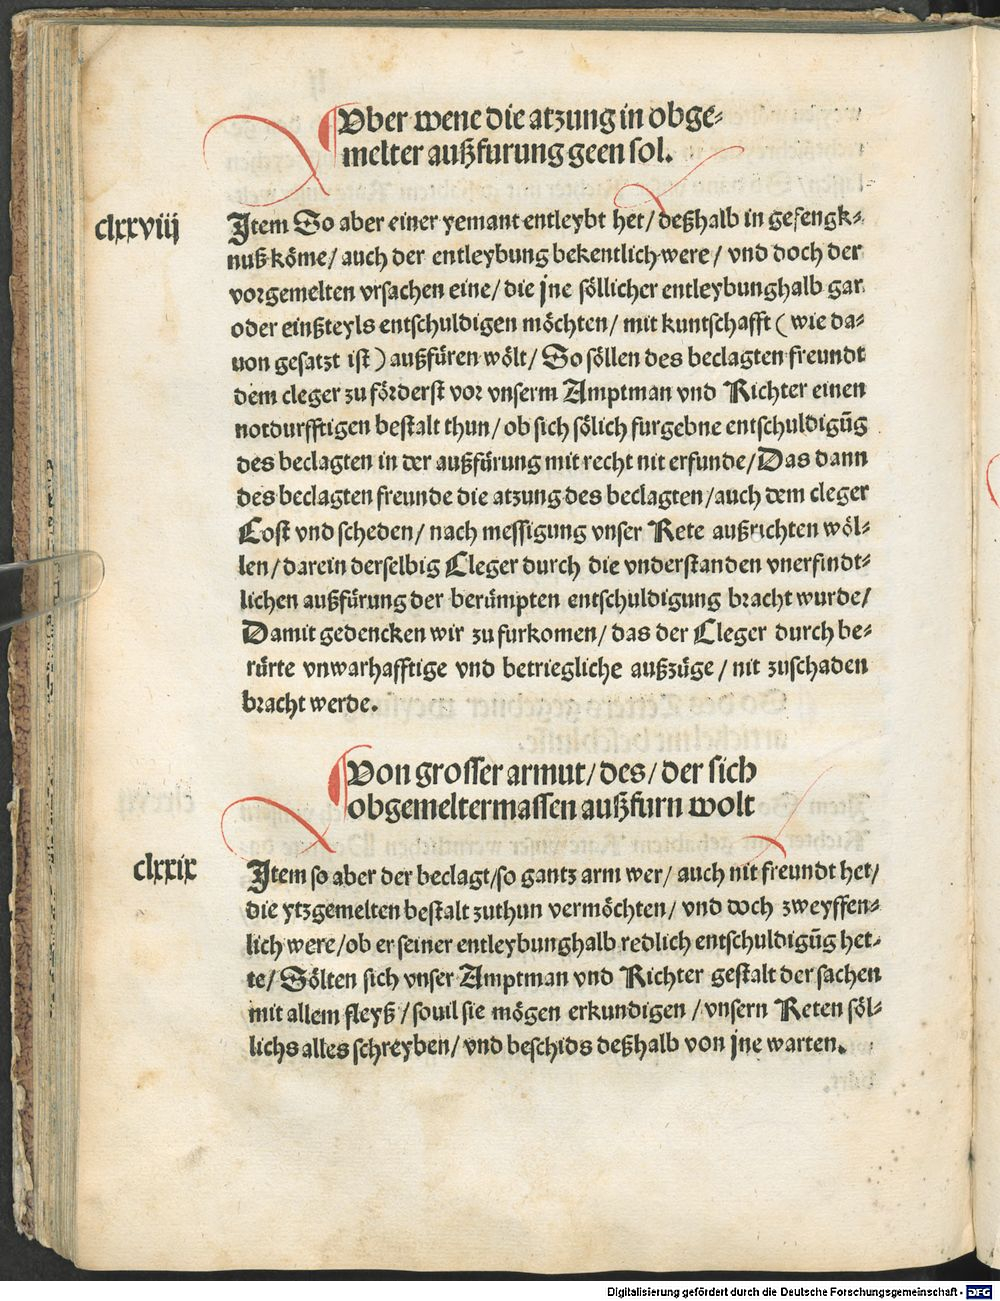 Vber wene die atzung in obge⸗
melter außfurung geen sol.
clxxviij
Item So aber einer yemant entleybt het/ deßhalb in gefengk⸗
nuß köme/ auch der entleybung bekentlich were/ vnd doch der
vorgemelten vrsachen eine/ die jne söllicher entleybunghalb gar
oder einßteyls entschuldigen möchten/ mit kuntschafft ( wie da⸗
uon gesatzt ist ) außfüren wölt/ So söllen des beclagten freundt
dem cleger zu förderst vor vnserm Amptman vnd Richter einen
notdurfftigen bestalt thun/ ob sich sölich furgebne entschuldigūg
des beclagten in der außfürung mit recht nit erfunde/ Das dann
des beclagten freunde die atzung des beclagten/ auch dem cleger
Cost vnd scheden/ nach messigung vnser Rete außrichten wöl⸗
len/ darein derselbig Cleger durch die vnderstanden vnerfindt⸗
lichen außfürung der berümpten entschuldigung bracht wurde/
Damit gedencken wir zu furkomen/ das der Cleger durch be⸗
rürte vnwarhafftige vnd betriegliche außzüge/ nit zuschaden
bracht werde.
Von grosser armut/ des/ der sich
obgemeltermassen außfurn wolt
clxxix
Item so aber der beclagt/ so gantz arm wer/ auch nit freundt het/
die ytzgemelten bestalt zuthun vermöchten/ vnd doch zweyffen⸗
lich were/ ob er seiner entleybunghalb redlich entschuldigūg het⸗
te/ Sölten sich vnser Amptman vnd Richter gestalt der sachen
mit allem fleyß/ souil sie mögen erkundigen/ vnsern Reten söl⸗
lichs alles schreyben/ vnd beschids deßhalb von jne warten.
Digitalisierung gefördert durch die Deutsche Forschungsgemeinschaft - DFG